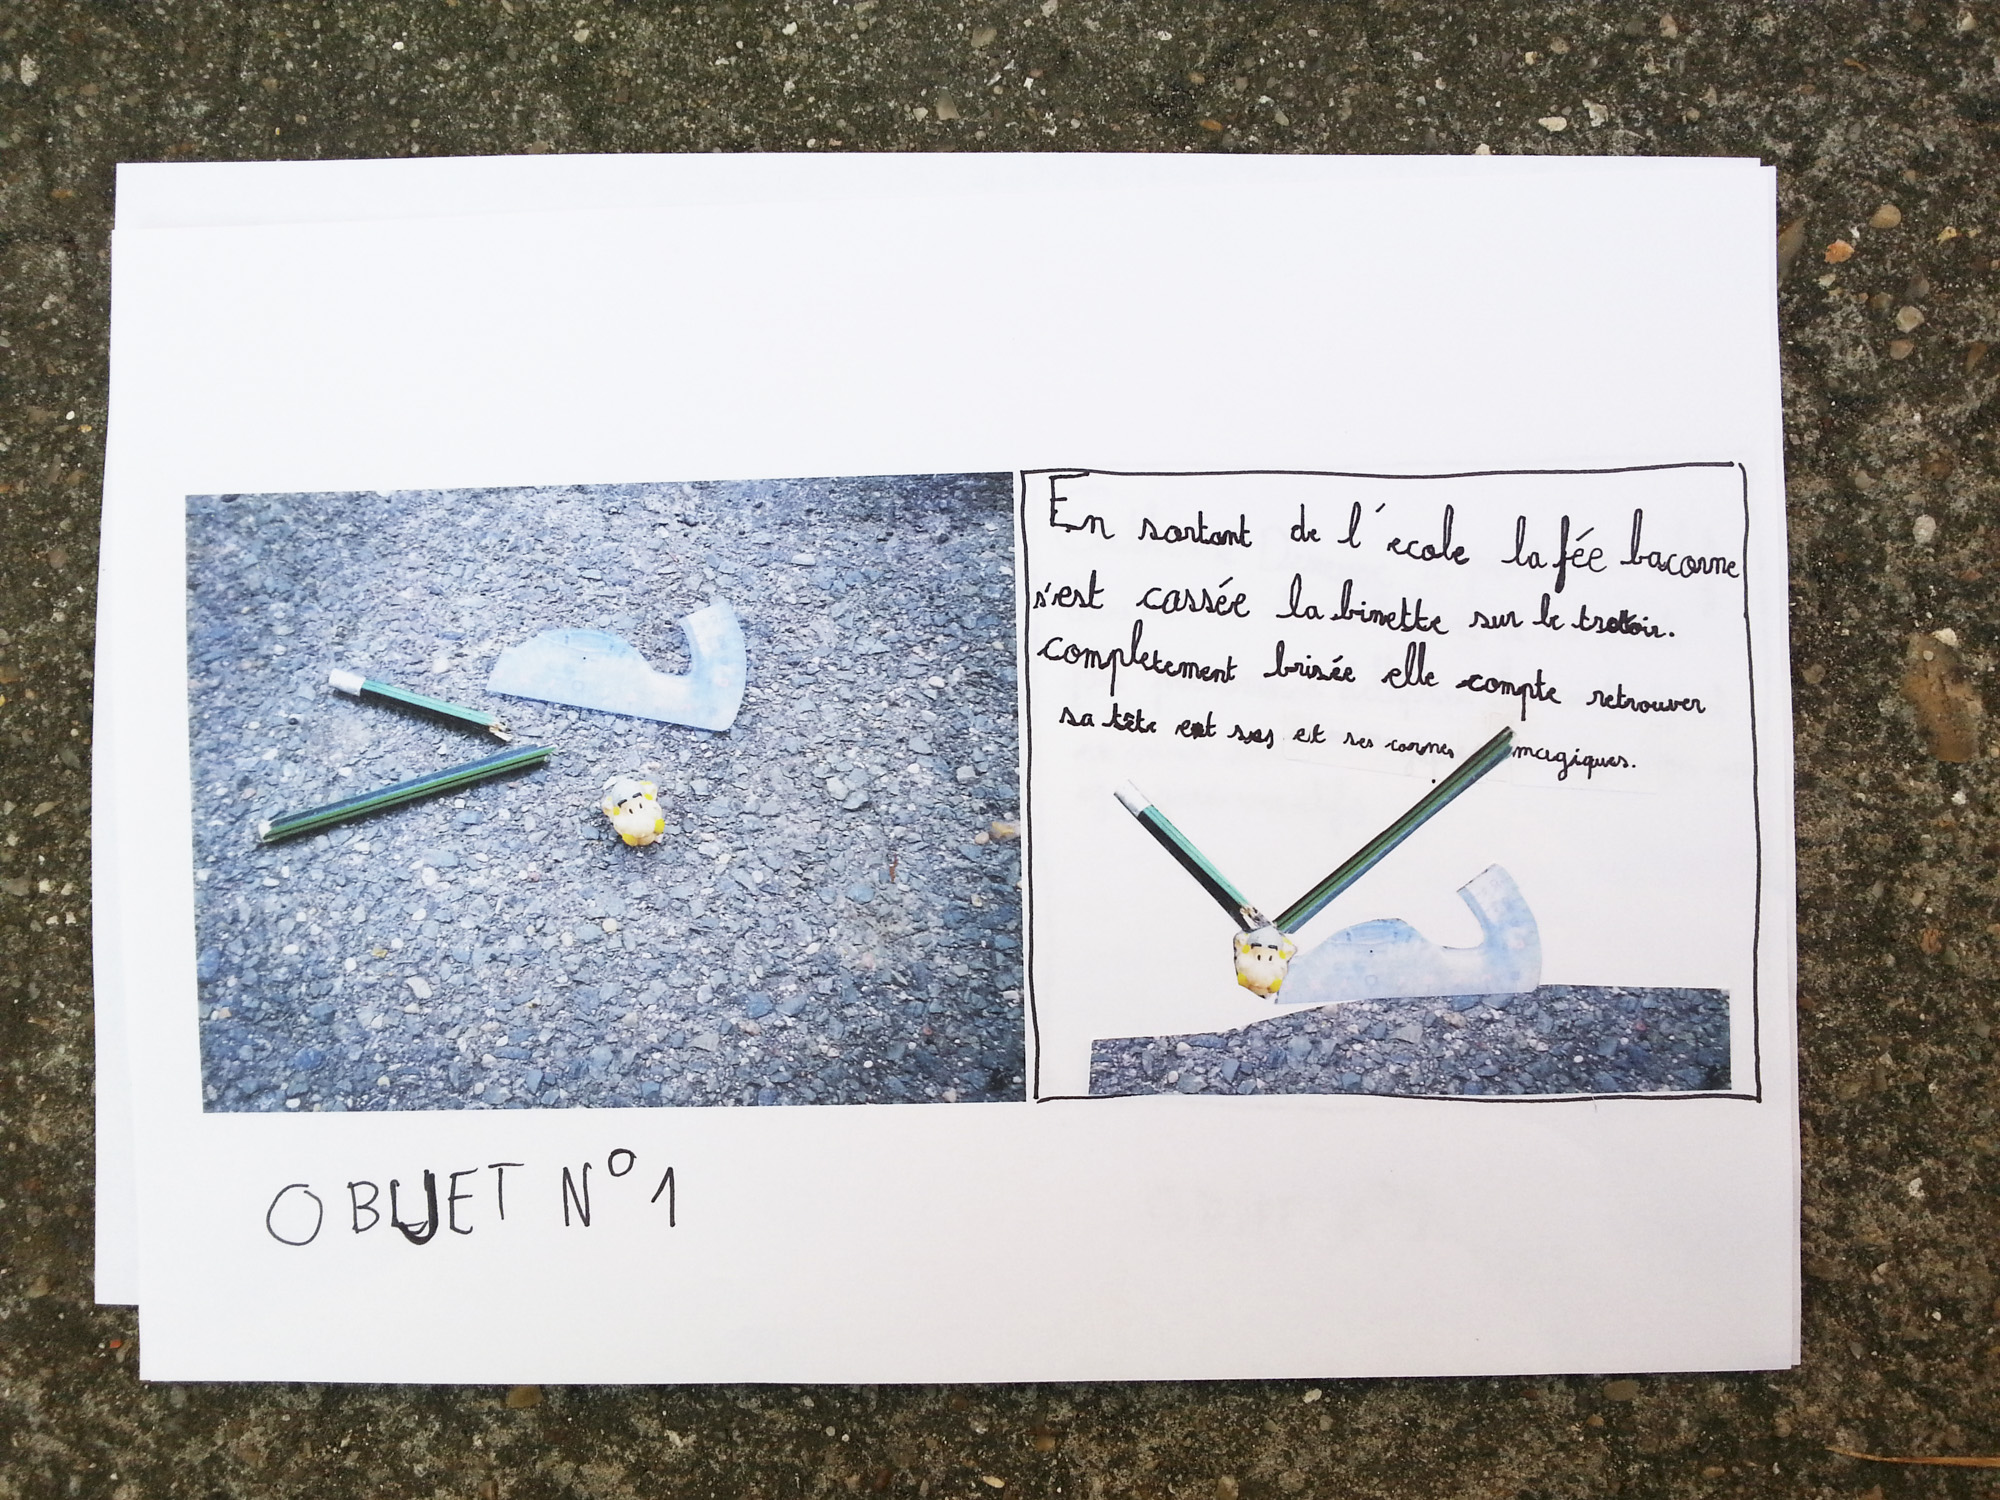 En sortant de l'ecole la fée bacorne
s'est cassée la binette sur le trottoir.
completement brisée elle compte retrouver
sa tête et ses et ses cornes magiques.
OBJET N°1